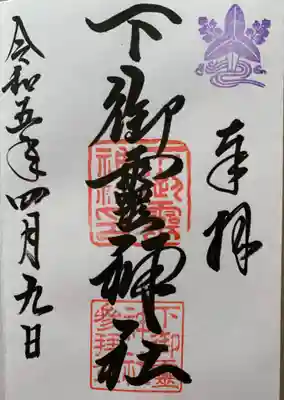 奉拝
下御靈神社
下御靈神社
下御靈神社参拜
令和五年四月九日